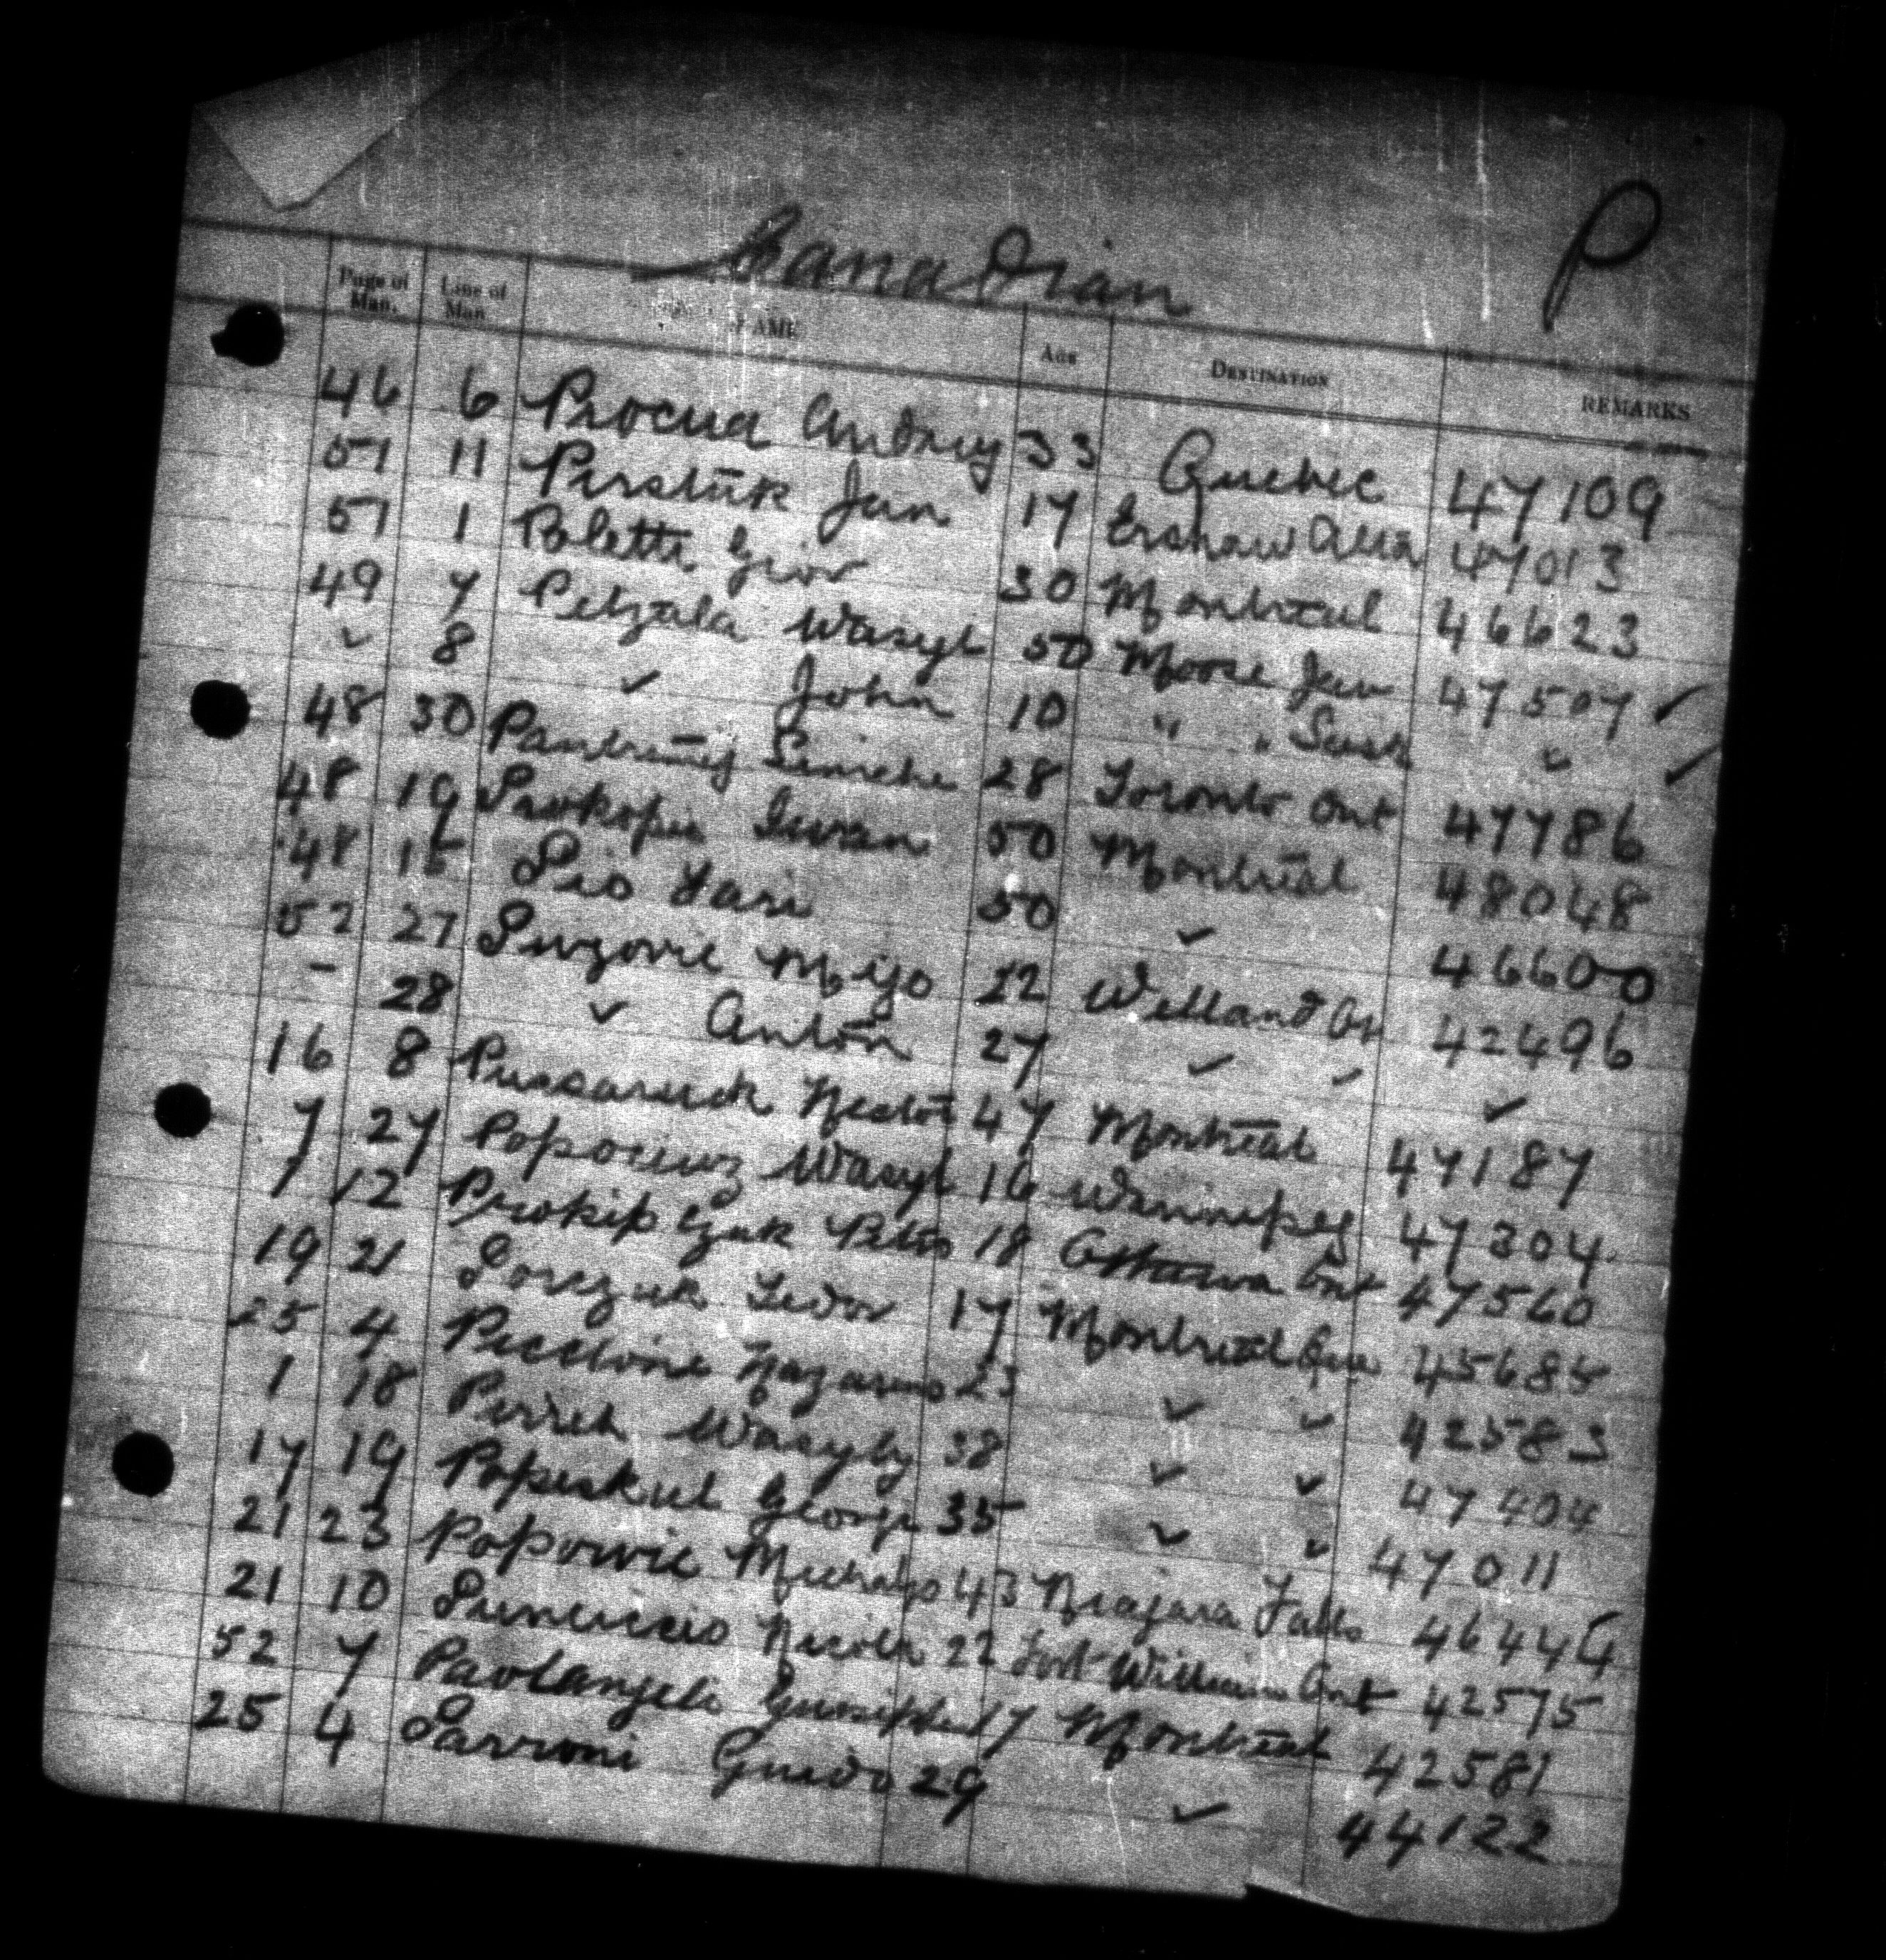 Canadian P
Page of Man. Line of Man. NAME AGE DESTINATION REMARKS
46 6 Procua Andruy 33 Quebec 47109
51 11 Perstuk Jan 17 Alta 47013
51 1 Poletti Gior 30 Montreal 46623
49 7 Petzala Wasyl 50 Moose Jaw 47507 ✓
" 8 " John 10 " " Sask " ✓
48 30 28 Toronto Ont 47786
48 19 Prokopie Iwan 50 Montreal 48048
48 15 Pio 50 " 46600
52 27 Mijo 22 Welland On 42496
- 28 " Anton 27 " " "
16 8 Nestor 47 Montreal 47187
7 27 Wasyl 16 Winnipeg 47304
1 12 Prokip Czuk Petro 18 Ottawa Ont 47560
19 21 Porczuk Fedor 17 Montreal Que 45685
25 4 Piccioni Nazareno 23 " " 42583
1 18 Wasyly 38 " " 47404
17 19 Popeskul George 35 " " 47011
21 23 Popowic Michalyo 43 Niagara Falls 46444
21 10 Nicola 22 Fort William Ont 42575
52 7 Paolangeli Guiseppe 17 Montreal 42581
25 4 Parroni Guido 29 " 44122